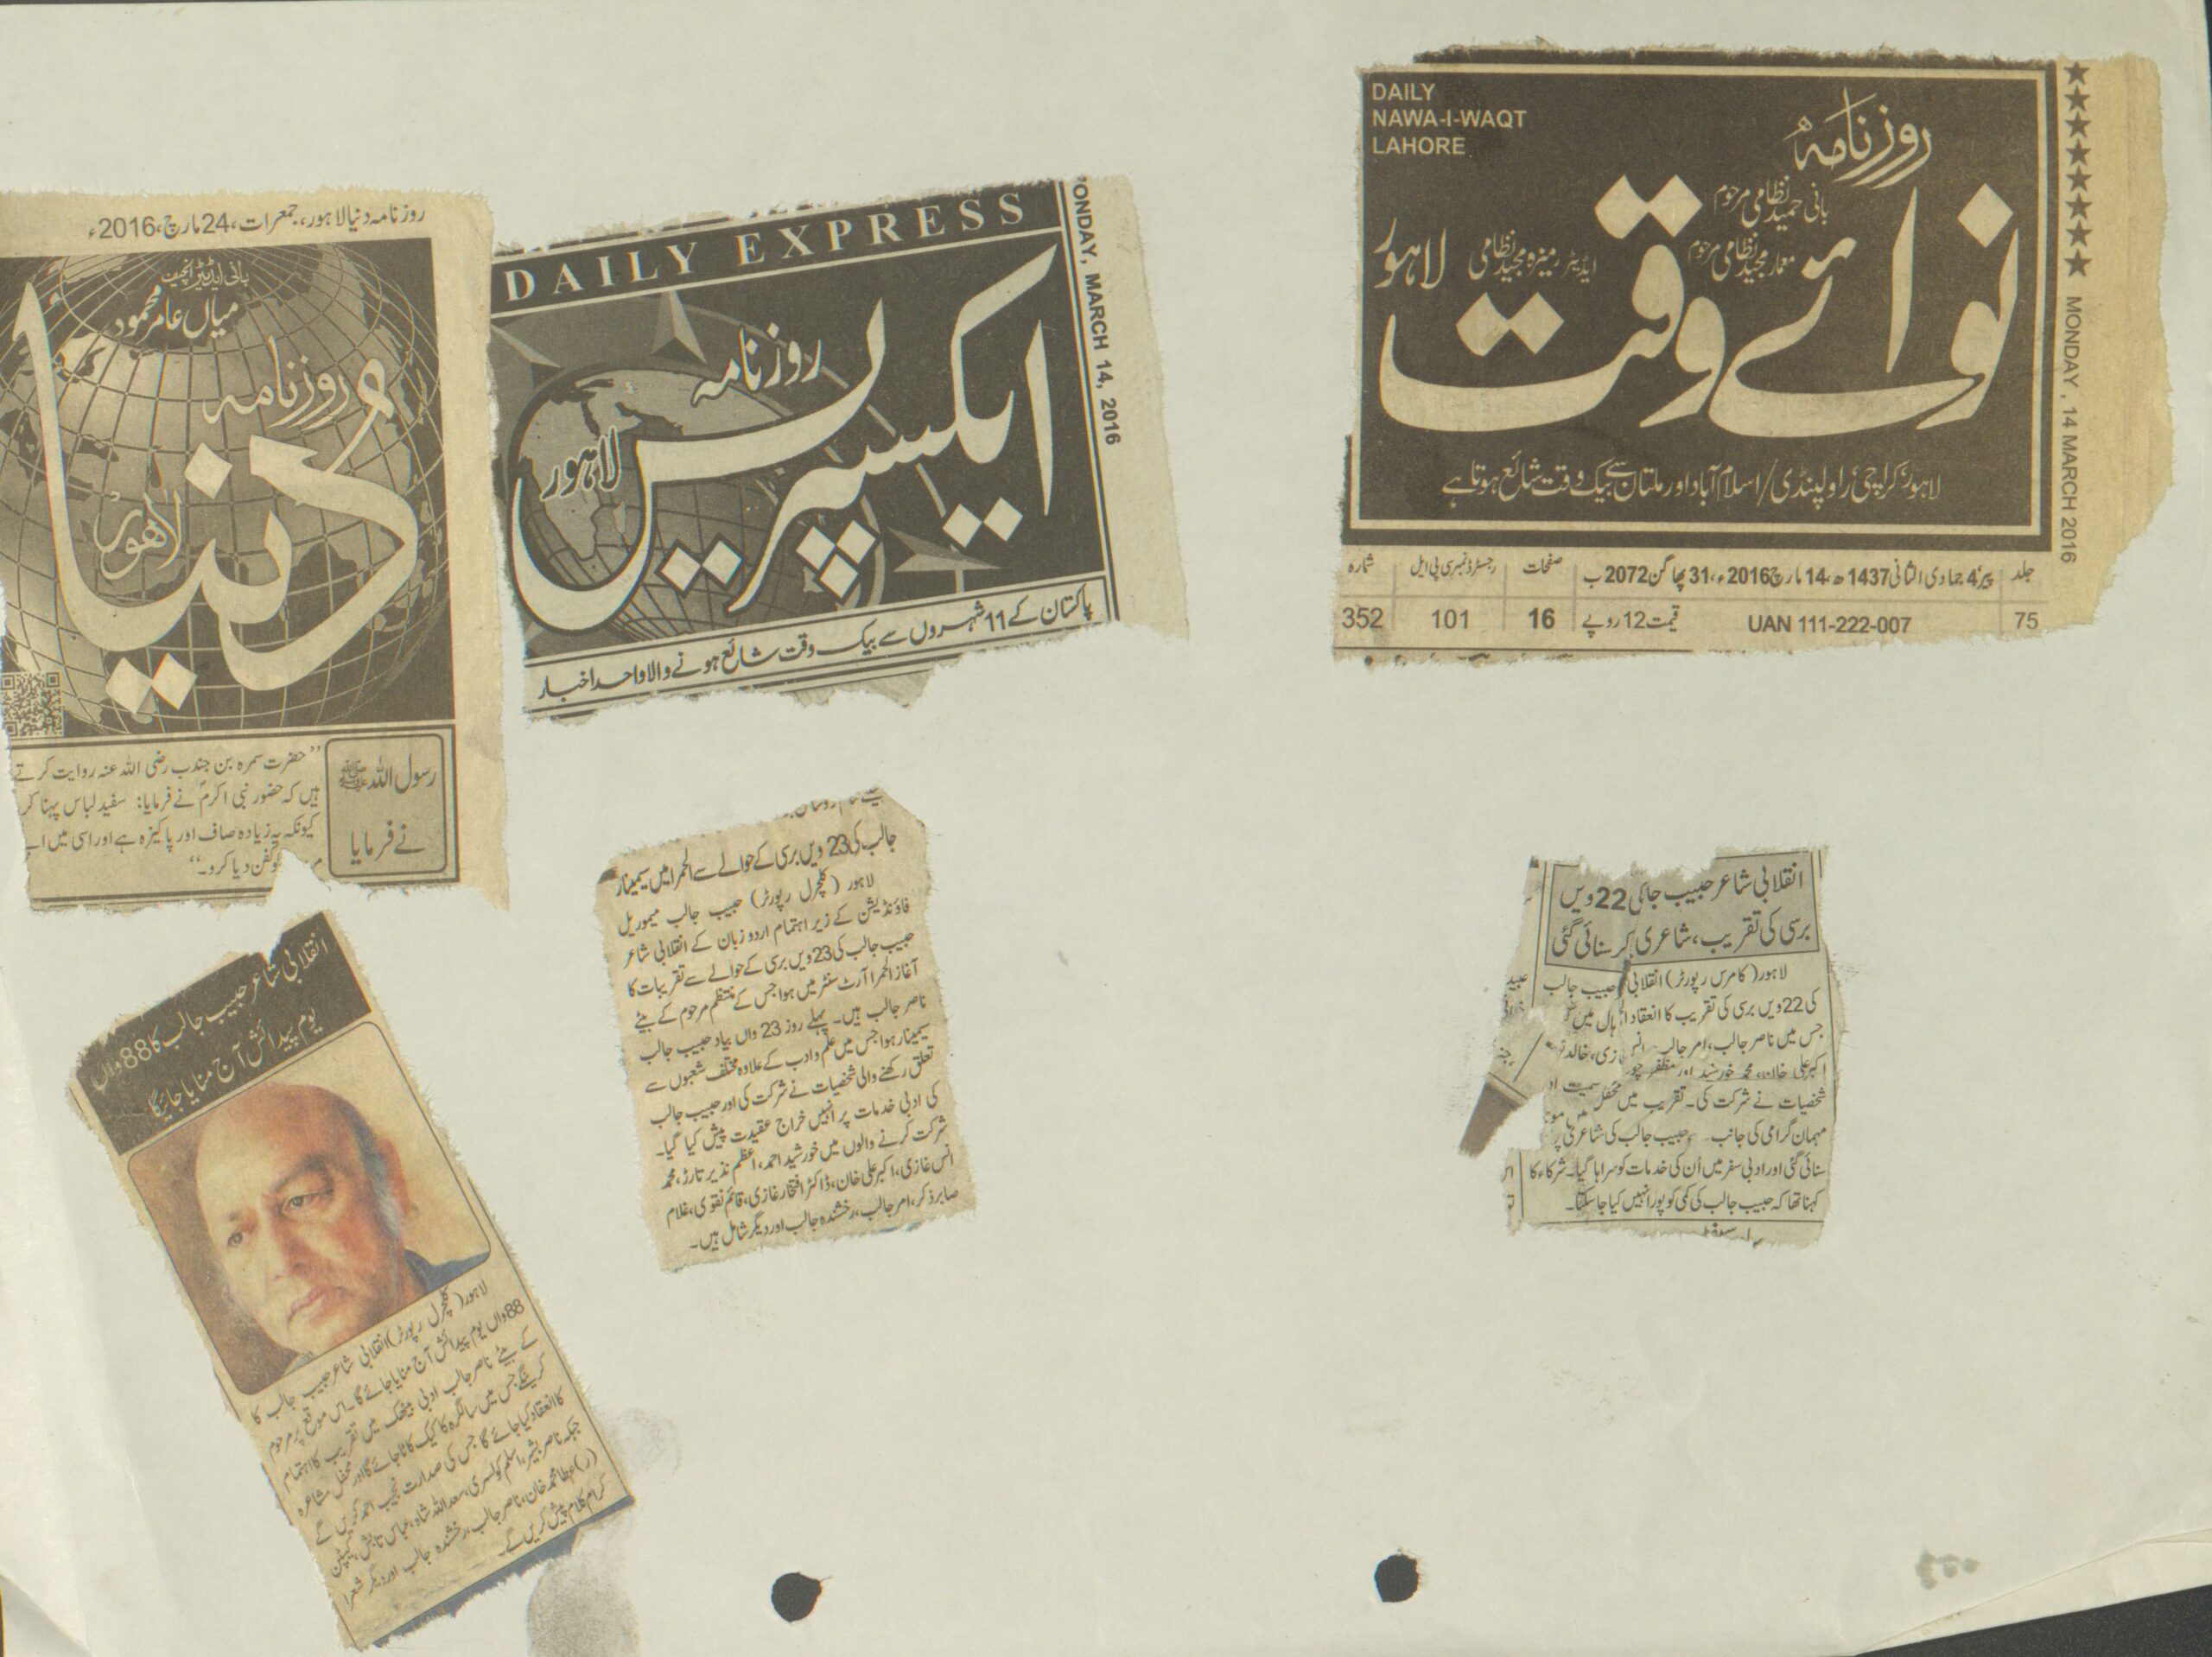 DAILY
NAWA-I-WAQT
LAHORE
روزنامہ
بانی حمید نظامی مرحوم
معمار مجید نظامی مرحوم
ایڈیٹر رمیزہ مجید نظامی
نوائے وقت
لاہور
لاہور، کراچی، راولپنڈی/اسلام آباد اور ملتان سے بیک وقت شائع ہوتا ہے
MONDAY, 14 MARCH 2016
جلد پیر 4 جمادی الثانی 1437ھ، 14 مارچ 2016ء، 31 پھاگن 2072 ب صفحات رجسٹرڈ نمبر سی پی ایل شمارہ
75 UAN 111-222-007 قیمت 12 روپے 16 101 352
انقلابی شاعر حبیب جالب کی 22 ویں
برسی کی تقریب، شاعری پڑھ کر سنائی گئی
لاہور (کامرس رپورٹر) انقلابی حبیب جالب
کی 22 ویں برسی کی تقریب کا انعقاد ہال میں
جس میں ناصر جالب، امر جالب، خالد
اکبر علی خان، محمد خورشید اور مظفر سمیت
شخصیات نے شرکت کی۔ تقریب میں محفل میں
مہمان گرامی کی جانب حبیب جالب کی شاعری پڑھ
سنائی گئی اور ادبی سفر میں اُن کی خدمات کو سراہا گیا۔ شرکاء کا
کہنا تھا کہ حبیب جالب کی کمی کو پورا نہیں کیا جا سکتا۔
DAILY EXPRESS
ONDAY, MARCH 14, 2016
روزنامہ
ایکسپریس
لاہور
پاکستان کے 11 شہروں سے بیک وقت شائع ہونے والا واحد اخبار
جالب کی 23 ویں برسی کے حوالے سے الحمرا میں سیمینار
لاہور (کلچرل رپورٹر) حبیب جالب میموریل
فاؤنڈیشن کے زیر اہتمام اردو زبان کے انقلابی شاعر
حبیب جالب کی 23 ویں برسی کے حوالے سے تقریبات کا
آغاز الحمرا آرٹ سنٹر میں ہوا جس کے منتظم مرحوم کے بیٹے
ناصر جالب ہیں۔ پہلے روز 23 واں بیاد حبیب جالب
سیمینار ہوا جس میں علم و ادب کے علاوہ مختلف شعبوں سے
تعلق رکھنے والی شخصیات نے شرکت کی اور حبیب جالب
کی ادبی خدمات پر انہیں خراج عقیدت پیش کیا گیا۔
شرکت کرنے والوں میں خورشید احمد، اعظم نذیر تارڑ، محمد
انس غازی، اکبر علی خان، ڈاکٹر افتخار غازی، قائم نقوی، غلام
صابر ذکر، امر جالب، رخشندہ جالب اور دیگر شامل ہیں۔
روزنامہ دنیا لاہور، جمعرات، 24 مارچ، 2016ء
بانی ایڈیٹر انچیف
میاں عامر محمود
روزنامہ
دُنیا
لاہور
رسول اللہ ﷺ
نے فرمایا
”حضرت سمرہ بن جندب رضی اللہ عنہ روایت کرتے
ہیں کہ حضور نبی اکرمؐ نے فرمایا: سفید لباس پہنا کر
کیونکہ یہ زیادہ صاف اور پاکیزہ ہے اور اسی میں
کفن دیا کرو۔“
انقلابی شاعر حبیب جالب کا 88 واں
یوم پیدائش آج منایا جائیگا
لاہور (کلچرل رپورٹر) انقلابی شاعر حبیب جالب کا
88 واں یوم پیدائش آج منایا جائے گا۔ اس موقع پر مرحوم
کے بیٹے ناصر جالب ادبی بیٹھک میں تقریب کا اہتمام
کرینگے جس میں سالگرہ کا کیک کاٹا جائے گا اور محفل مشاعرہ
کا انعقاد کیا جائے گا جس کی صدارت نجیب احمد کریں گے
جبکہ ناصر بشیر، اسلم کولسری، سعد اللہ شاہ، عباس تابش، کیپٹن
(ر) عطا محمد خان، ناصر جالب، رخشندہ جالب اور دیگر شعرا
کرام کلام پیش کریں گے۔